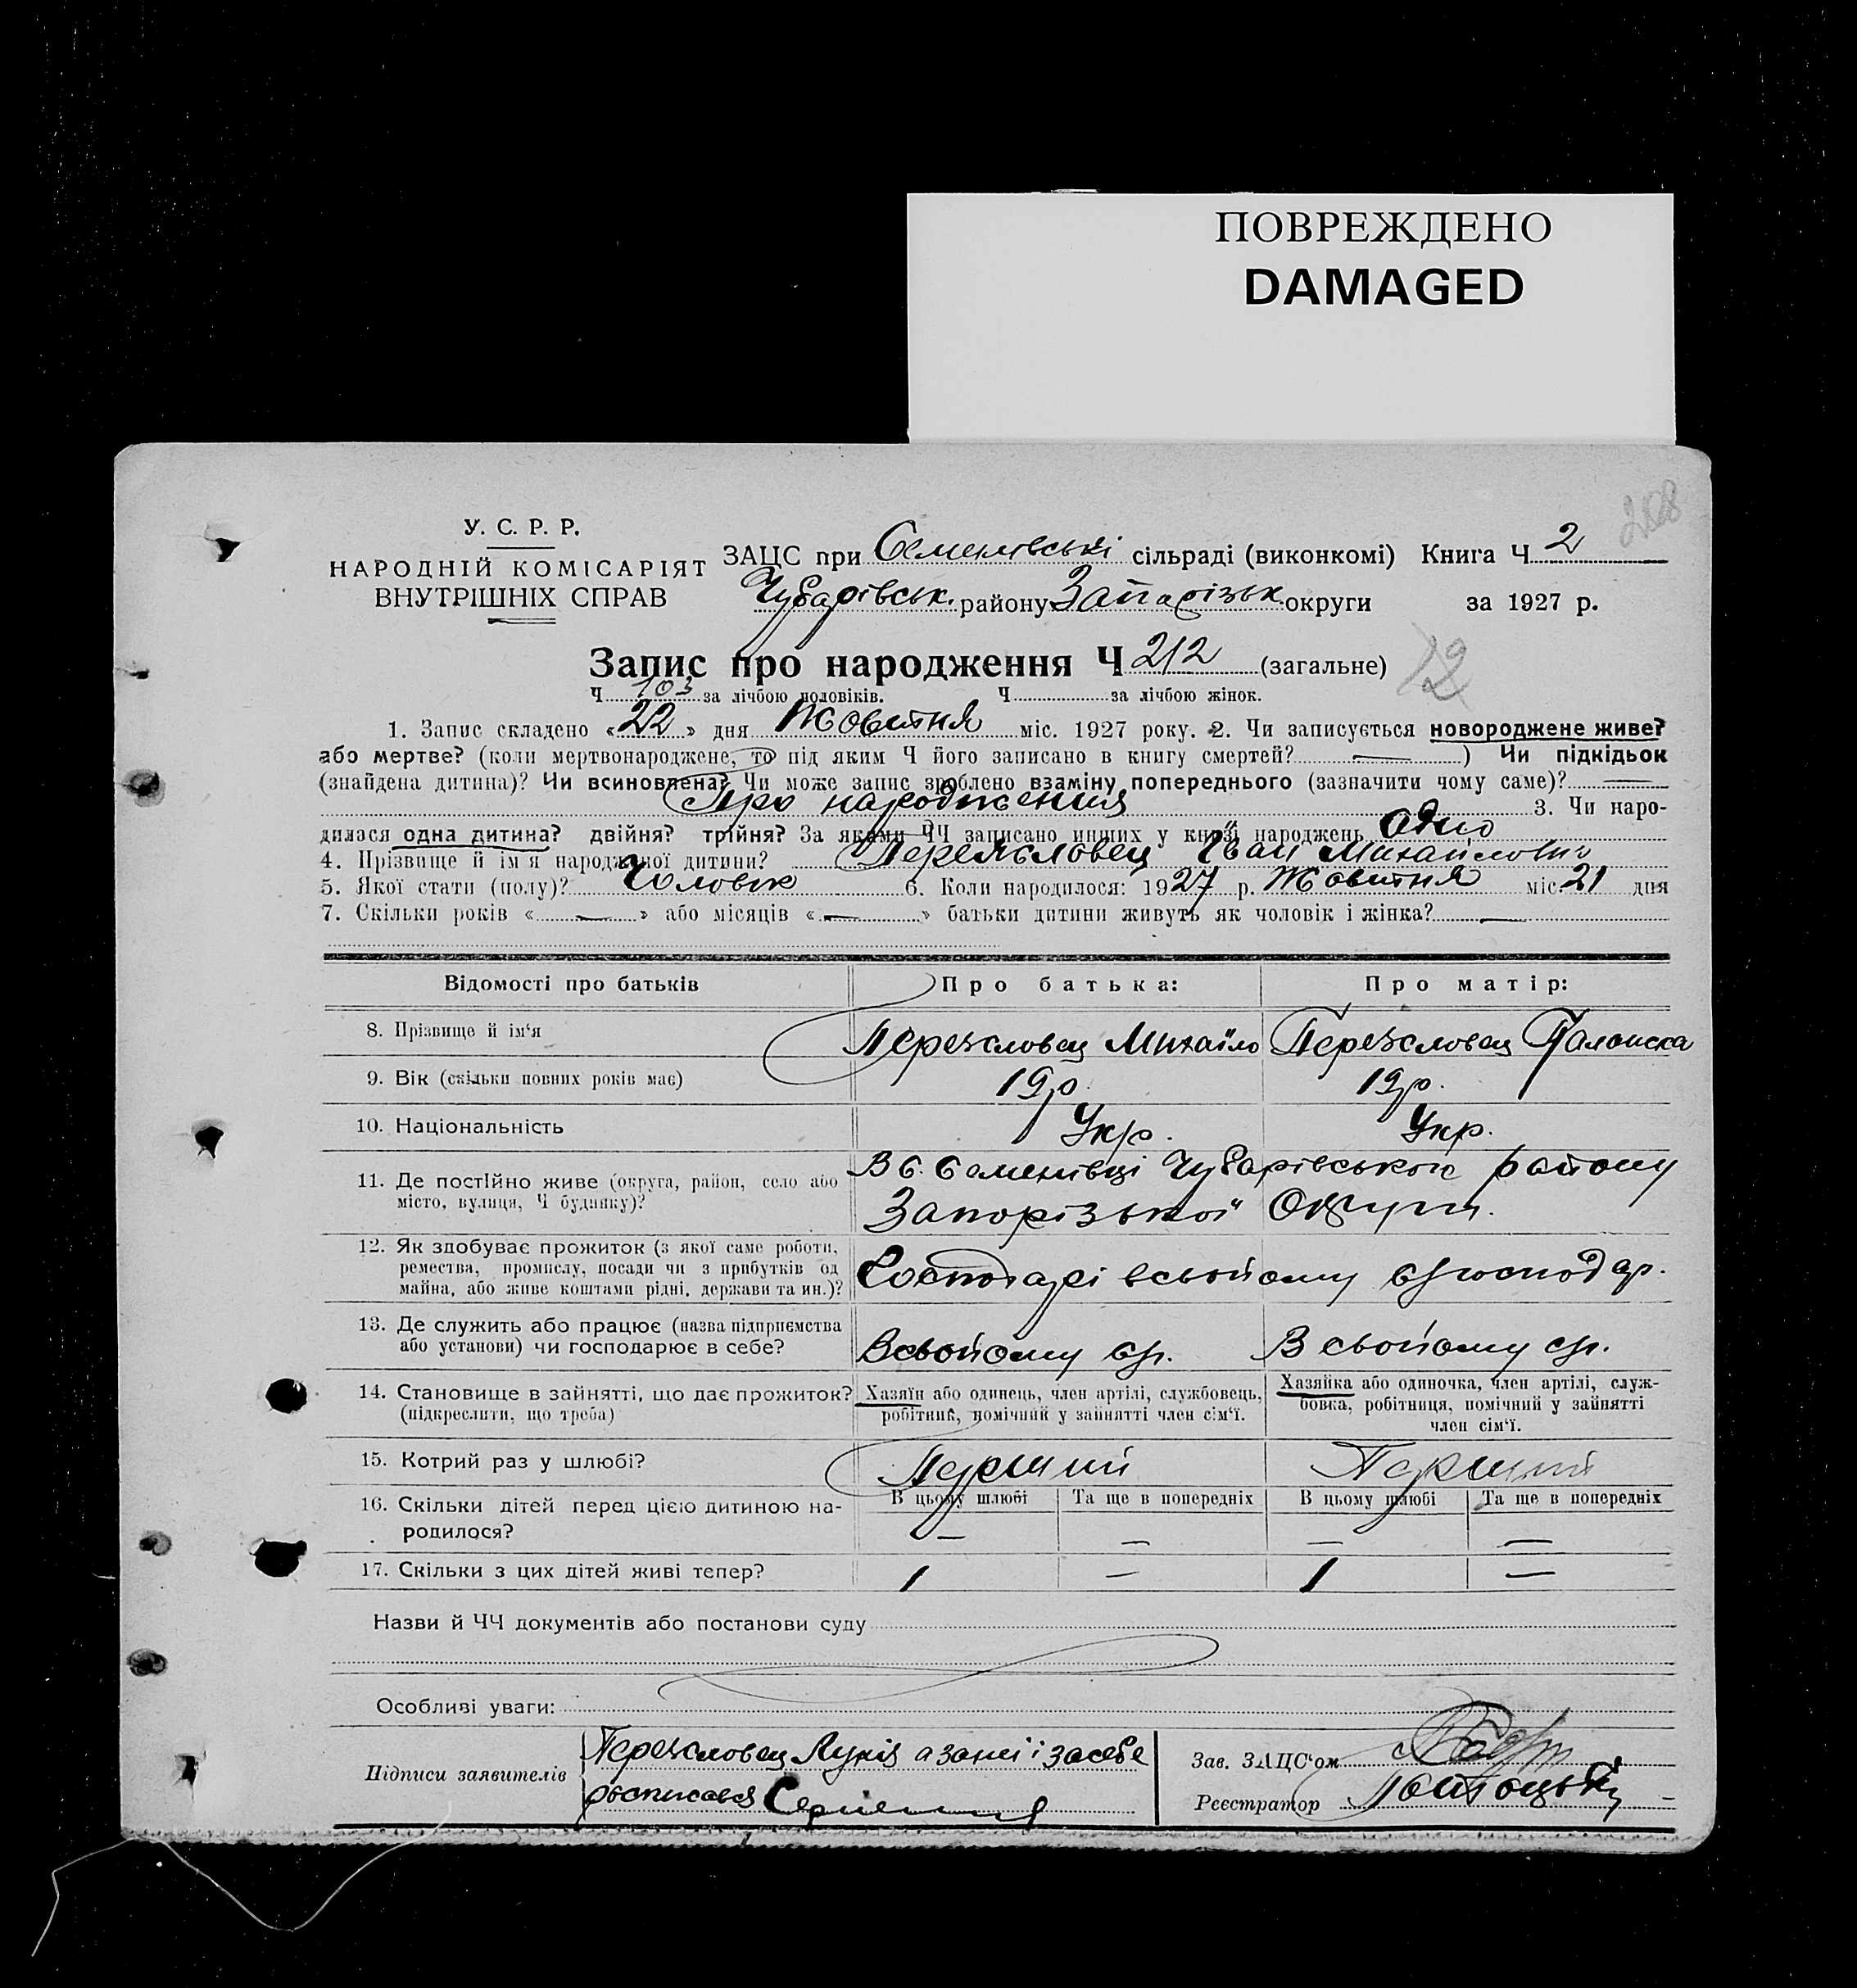 ПОВРЕЖДЕНО
DAMAGED
208
У. С. Р. Р.
НАРОДНІЙ КОМІСАРІЯТ
ВНУТРІШНІХ СПРАВ
ЗАЦС при Семенівські сільраді (виконкомі) Книга Ч 2
Чубарівськ. району Запорізьк. округи за 1927 р.
Запис про народження Ч 212 (загальне) 12
Ч 103 за лічбою чоловіків. Ч за лічбою жінок.
1. Запис складено «22» дня Жовтня міс. 1927 року. 2. Чи записується новороджене живе?
або мертве? (коли мертвонароджене, то під яким Ч його записано в книгу смертей? —) Чи підкідьок
(знайдена дитина)? Чи всиновлена? Чи може запис зроблено взаміну попереднього (зазначити чому саме)? —
Про народження 3. Чи наро-
дилася одна дитина? двійня? трійня? За якими ЧЧ записано инших у книзі народжень Одно
4. Прізвище й ім'я народженої дитини? Переясловец Іван Михайлович
5. Якої стати (полу)? Чоловік 6. Коли народилося: 1927 р. Жовтня міс. 21 дня
7. Скільки років « — » або місяців « — » батьки дитини живуть як чоловік і жінка? —
Відомості про батьків Про батька: Про матір:
8. Прізвище й ім'я Переясловец Михаіло Переясловец
9. Вік (скільки повних років має) 19 р. 19 р.
10. Національність Укр. Укр.
11. Де постійно живе (округа, район, село або В с. Семенівці Чубарівського району
місто, вулиця, Ч будинку)? Запорізької Округи.
12. Як здобуває прожиток (з якої саме роботи,
ремества, промислу, посади чи з прибутків од Господарі всьойому
майна, або живе коштами рідні, держави та ин.)?
13. Де служить або працює (назва підприємства
або установи) чи господарює в себе? Всьойому В сьойому
14. Становище в зайнятті, що дає прожиток? Хазяїн або одинець, член артілі, службовець, Хазяйка або одиночка, член артілі, служ-
(підкреслити, що треба) робітник, помічний у зайнятті член сім'ї. бовка, робітниця, помічний у зайнятті
член сім'ї.
15. Котрий раз у шлюбі? Перший Перший
16. Скільки дітей перед цією дитиною на- В цьому шлюбі Та ще в попередніх В цьому шлюбі Та ще в попередніх
родилося? — — — —
17. Скільки з цих дітей живі тепер? 1 — 1 —
Назви й ЧЧ документів або постанови суду
Особливі уваги:
Підписи заявителів Переясловец а за неі і за себе
росписався
Зав. ЗАЦС'ом
Реєстратор